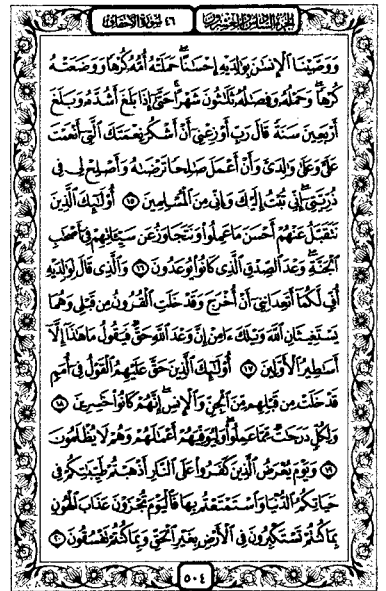 الجزء السادس والعشرون ٤٦ سورة الأحقاف
وَوَصَّيْنَا ٱلْإِنسَٰنَ بِوَٰلِدَيْهِ إِحْسَٰنًا ۖ حَمَلَتْهُ أُمُّهُۥ كُرْهًا وَوَضَعَتْهُ
كُرْهًا ۖ وَحَمْلُهُۥ وَفِصَٰلُهُۥ ثَلَٰثُونَ شَهْرًا ۚ حَتَّىٰٓ إِذَا بَلَغَ أَشُدَّهُۥ وَبَلَغَ
أَرْبَعِينَ سَنَةً قَالَ رَبِّ أَوْزِعْنِىٓ أَنْ أَشْكُرَ نِعْمَتَكَ ٱلَّتِىٓ أَنْعَمْتَ
عَلَىَّ وَعَلَىٰ وَٰلِدَىَّ وَأَنْ أَعْمَلَ صَٰلِحًا تَرْضَىٰهُ وَأَصْلِحْ لِى فِى
ذُرِّيَّتِىٓ ۖ إِنِّى تُبْتُ إِلَيْكَ وَإِنِّى مِنَ ٱلْمُسْلِمِينَ ١٥ أُو۟لَٰٓئِكَ ٱلَّذِينَ
نَتَقَبَّلُ عَنْهُمْ أَحْسَنَ مَا عَمِلُوا۟ وَنَتَجَاوَزُ عَن سَيِّـَٔاتِهِمْ فِىٓ أَصْحَٰبِ
ٱلْجَنَّةِ ۖ وَعْدَ ٱلصِّدْقِ ٱلَّذِى كَانُوا۟ يُوعَدُونَ ١٦ وَٱلَّذِى قَالَ لِوَٰلِدَيْهِ
أُفٍّ لَّكُمَآ أَتَعِدَانِنِىٓ أَنْ أُخْرَجَ وَقَدْ خَلَتِ ٱلْقُرُونُ مِن قَبْلِى وَهُمَا
يَسْتَغِيثَانِ ٱللَّهَ وَيْلَكَ ءَامِنْ إِنَّ وَعْدَ ٱللَّهِ حَقٌّ فَيَقُولُ مَا هَٰذَآ إِلَّآ
أَسَٰطِيرُ ٱلْأَوَّلِينَ ١٧ أُو۟لَٰٓئِكَ ٱلَّذِينَ حَقَّ عَلَيْهِمُ ٱلْقَوْلُ فِىٓ أُمَمٍ
قَدْ خَلَتْ مِن قَبْلِهِم مِّنَ ٱلْجِنِّ وَٱلْإِنسِ ۖ إِنَّهُمْ كَانُوا۟ خَٰسِرِينَ ١٨
وَلِكُلٍّ دَرَجَٰتٌ مِّمَّا عَمِلُوا۟ ۖ وَلِيُوَفِّيَهُمْ أَعْمَٰلَهُمْ وَهُمْ لَا يُظْلَمُونَ
١٩ وَيَوْمَ يُعْرَضُ ٱلَّذِينَ كَفَرُوا۟ عَلَى ٱلنَّارِ أَذْهَبْتُمْ طَيِّبَٰتِكُمْ فِى
حَيَاتِكُمُ ٱلدُّنْيَا وَٱسْتَمْتَعْتُم بِهَا فَٱلْيَوْمَ تُجْزَوْنَ عَذَابَ ٱلْهُونِ
بِمَا كُنتُمْ تَسْتَكْبِرُونَ فِى ٱلْأَرْضِ بِغَيْرِ ٱلْحَقِّ وَبِمَا كُنتُمْ تَفْسُقُونَ ٢٠
٥٠٤